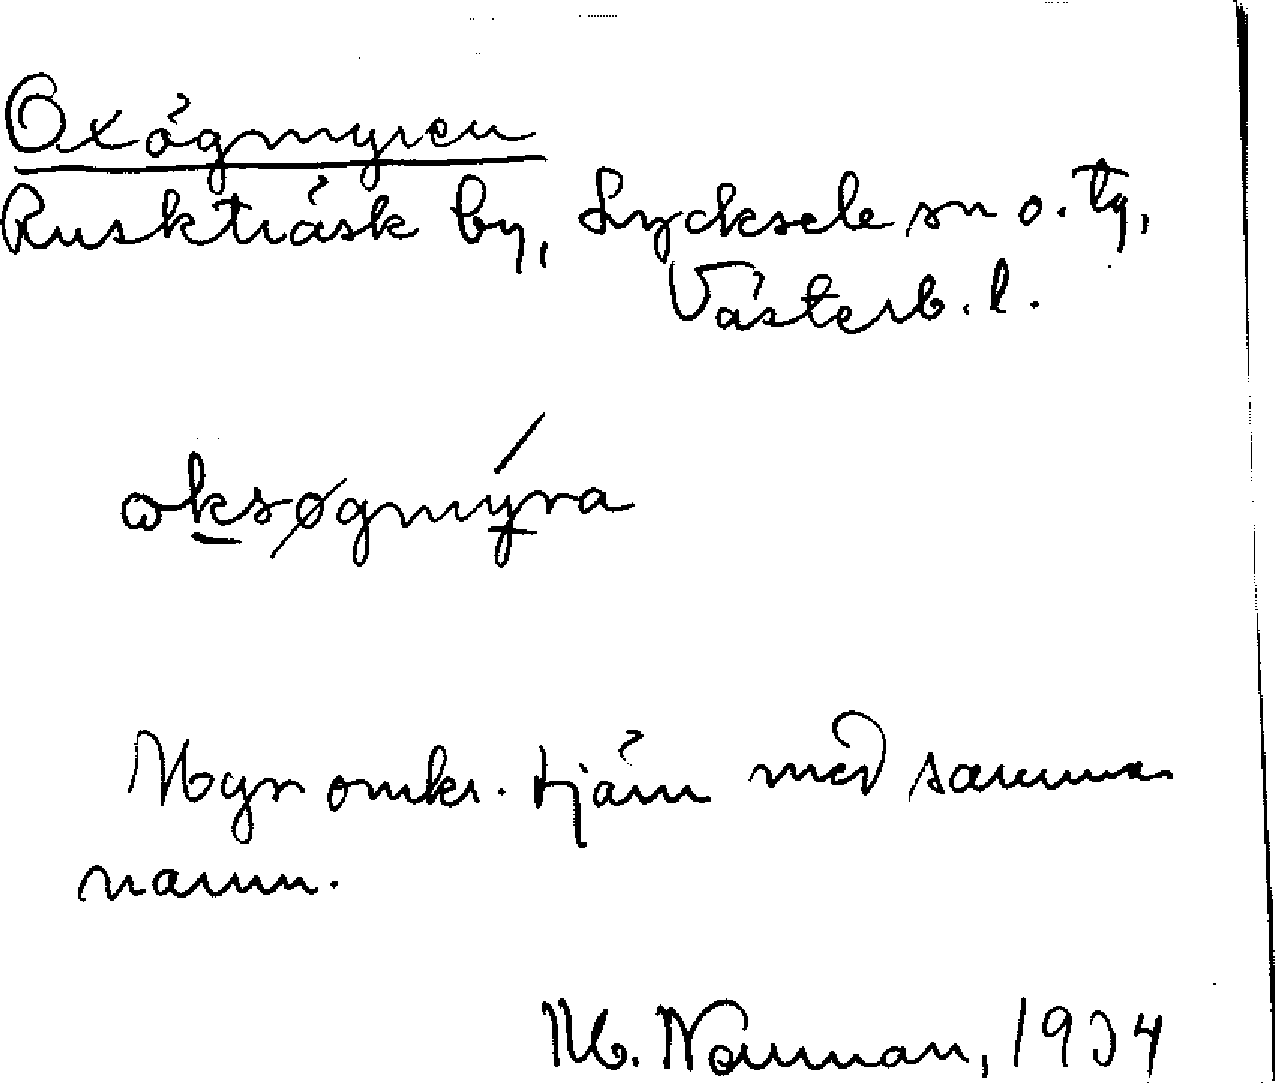 Oxögmyren
Ruskträsk by, Lycksele sn o. tg,
Västerb. l.
oksøgmyra
Myr omkr. tjärn med samma
namn.
M. Norman, 1934